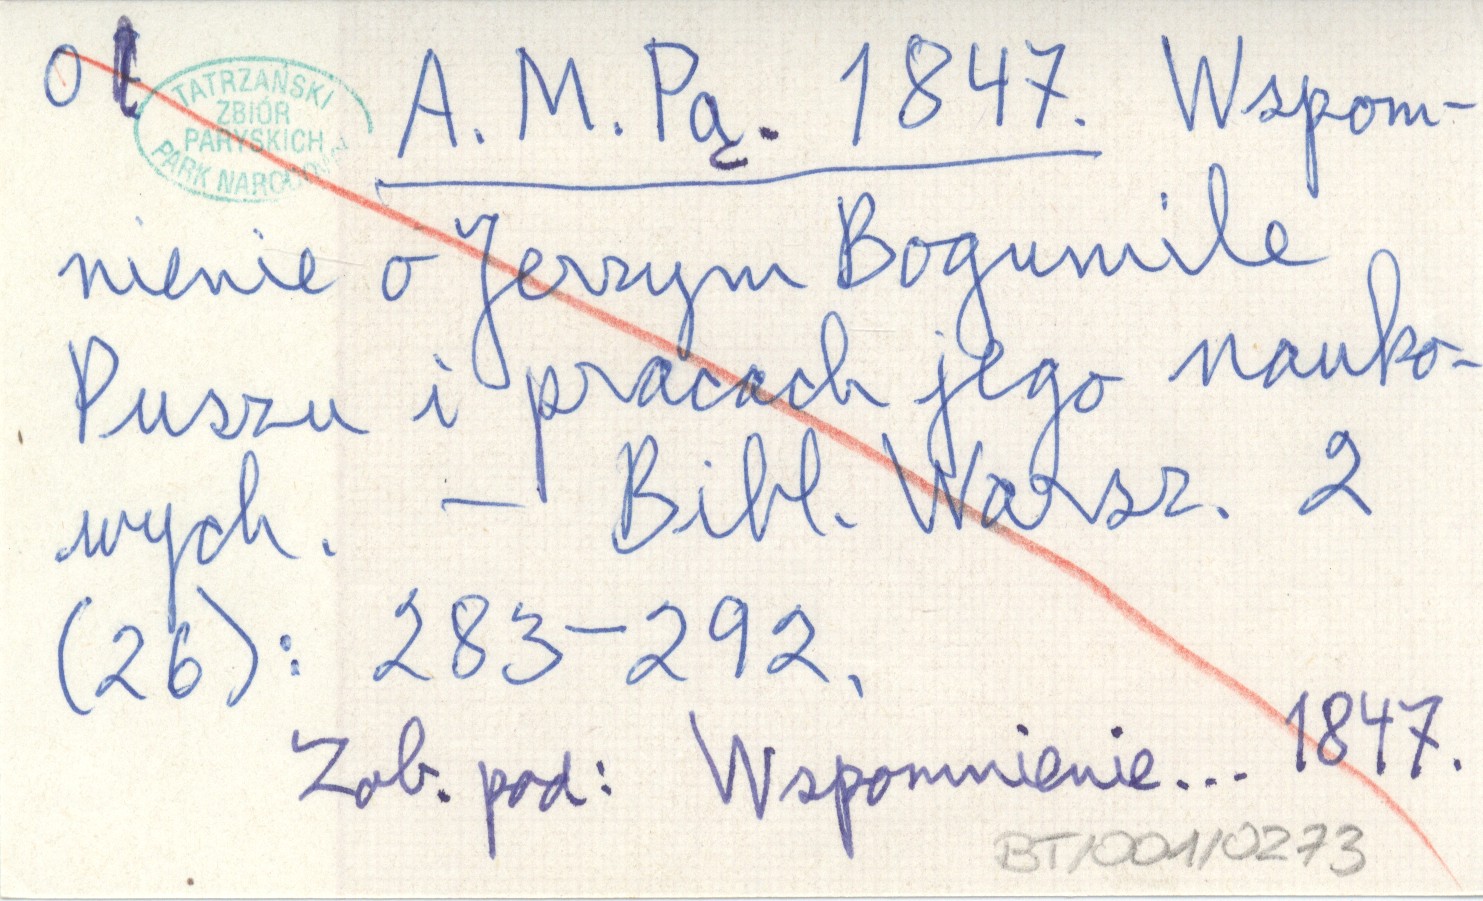 TATRZAŃSKI
ZBIÓR
PARYSKICH
PARK NARODOWY
A. M. Pą. 1847. Wspom-
nienie o Jerzym Bogumile
Puszu i pracach jego nauko-
wych. — Bibl. Warsz. 2
(26): 283-292.
Zob. pod: Wspomnienie... 1847.
BT/001/0273